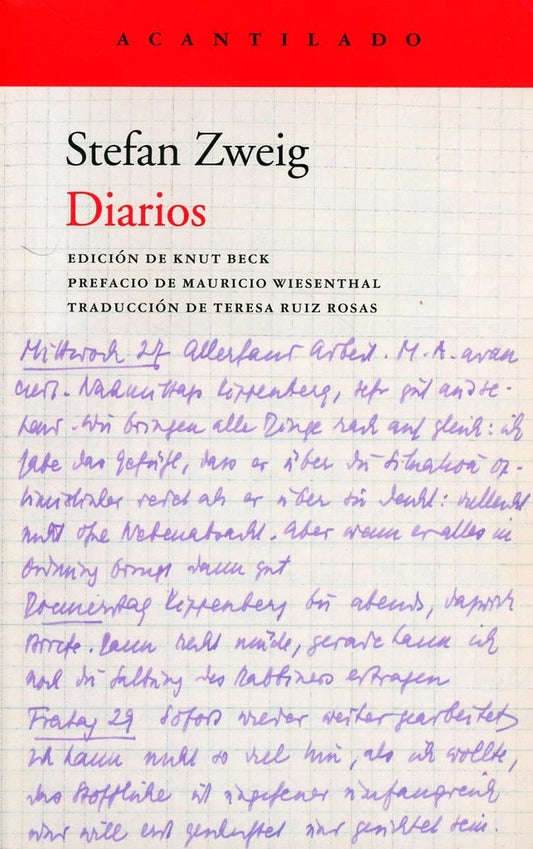 ACANTILADO
Stefan Zweig
Diarios
EDICIÓN DE KNUT BECK
PREFACIO DE MAURICIO WIESENTHAL
TRADUCCIÓN DE TERESA RUIZ ROSAS
Mittwoch 27 Allerhand Arbeit. M. A. avan
ciert. Nachmittags Kippenberg, sehr gut ausse-
hend. Wir bringen alle Dinge rasch auf gleich: ich
habe das Gefühl, dass er über die Situation op-
timistischer redet als er über sie denkt: vielleicht
nicht ohne Nebenabsicht. Aber wenn er alles in
Ordnung bringt dann gut
Donnerstag Kippenberg bis abends,
Briefe. Dann recht müde, gerade kann ich
noch die des Rabbiners ertragen
Freitag 29 Sofort wieder weiter gearbeitet
Ich kann nicht so viel hin, als ich wollte,
das Stoffliche ist ungeheuer umfangreich
und will erst und gesichtet sein.